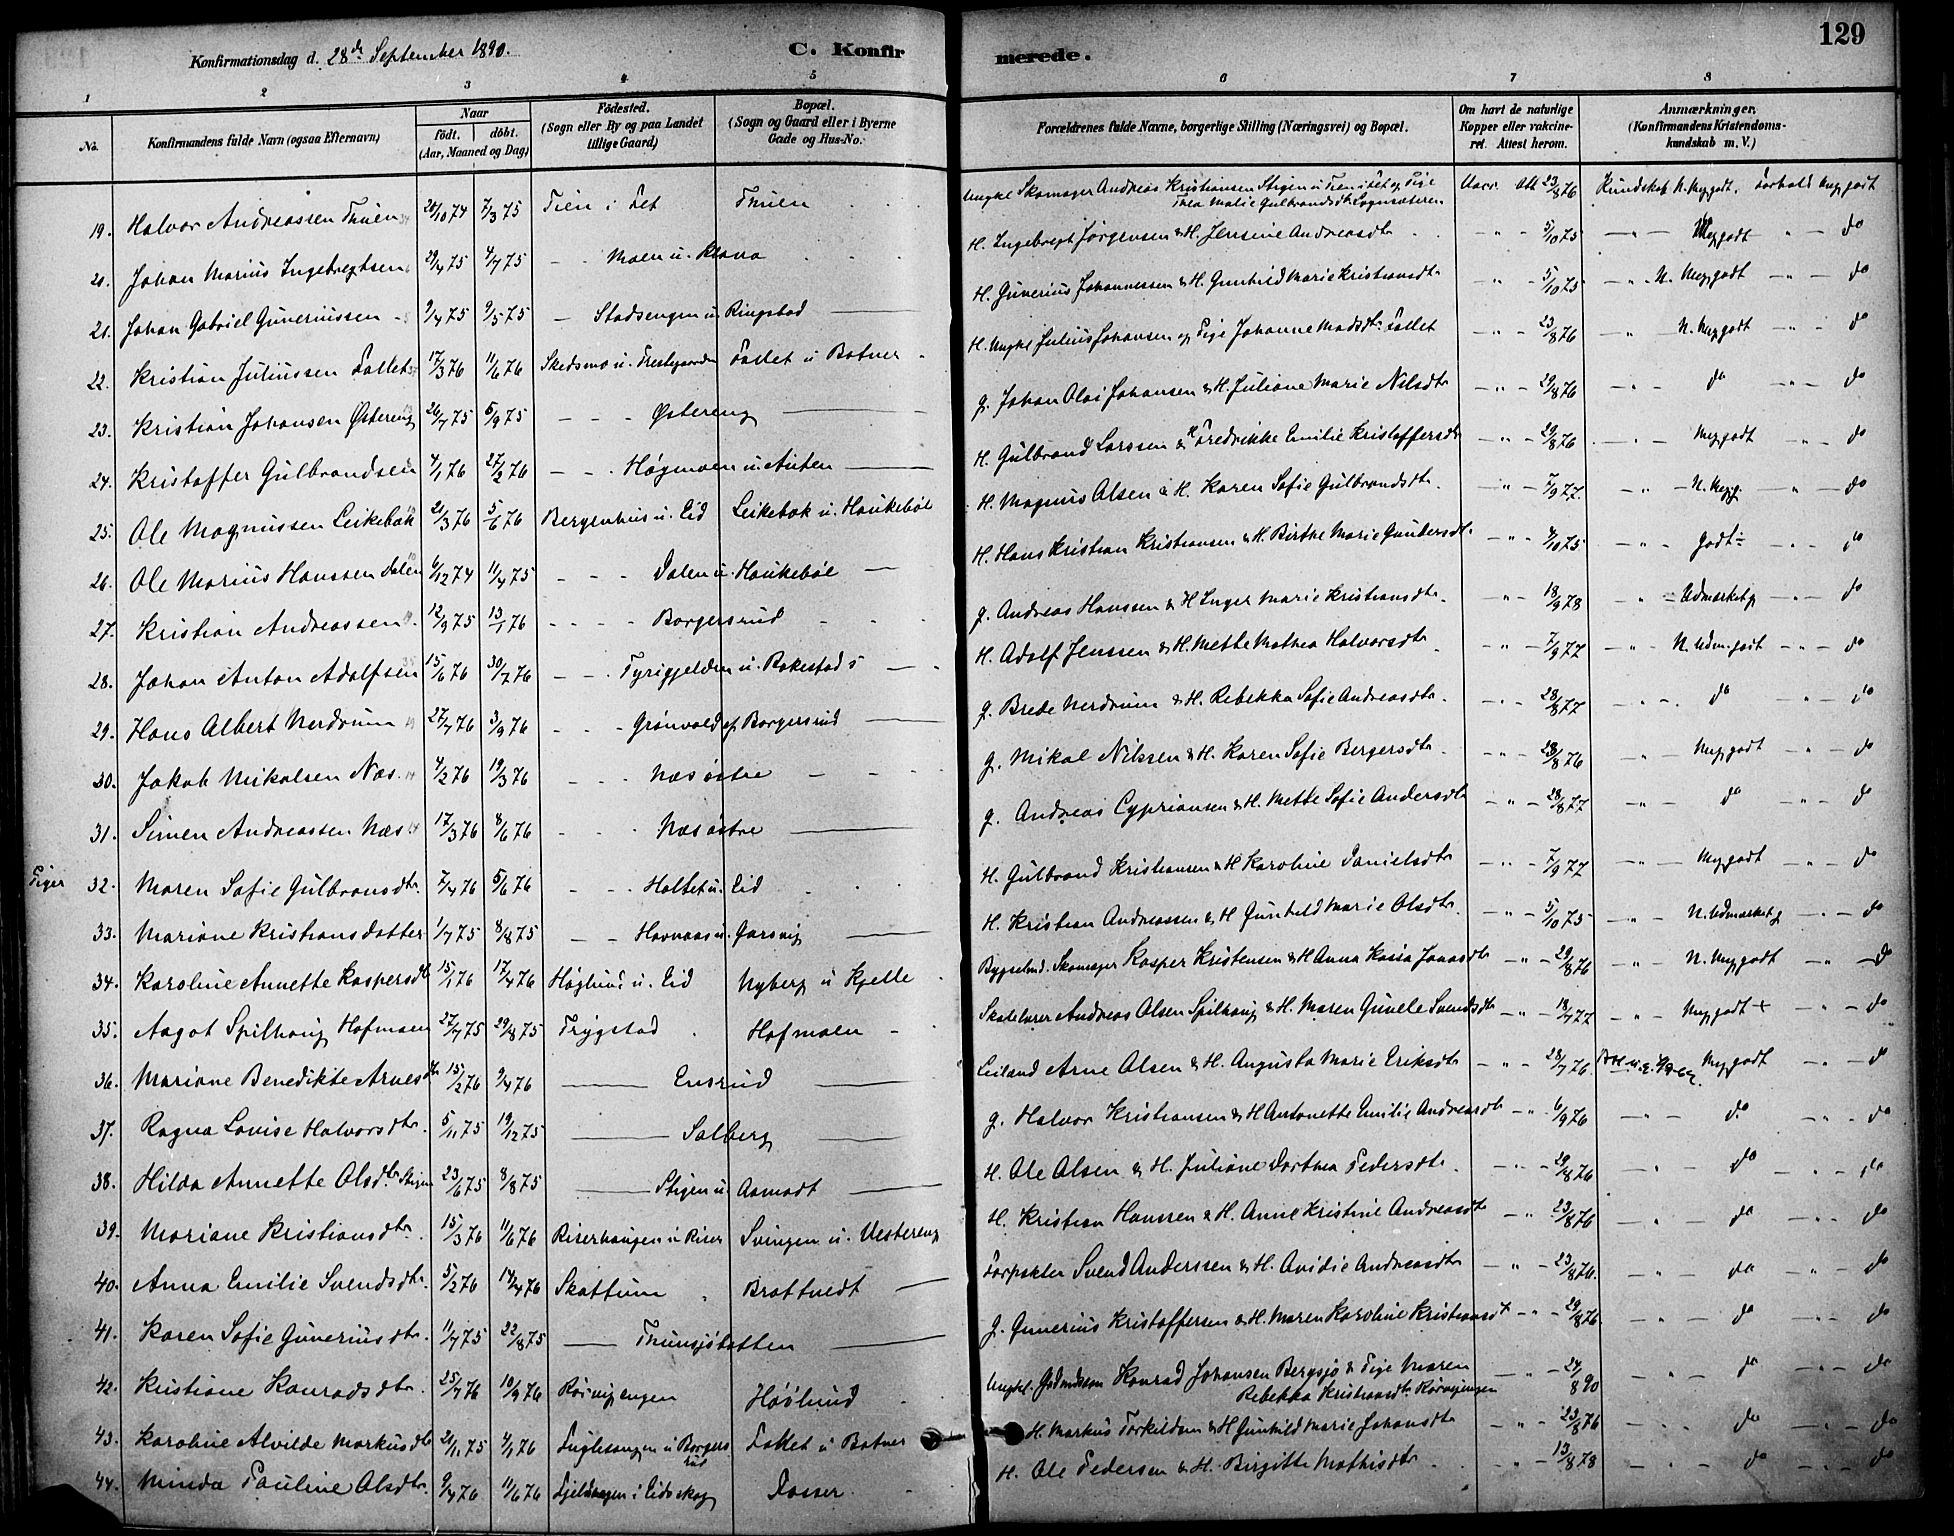 129
Konfirmationsdag d. 28de September 1890.
C. Konfirmerede.
1 2 3 4 5 6 7 8
No.
Konfirmandens fulde Navn (ogsaa Efternavn)
Naar
födt. döbt.
(Aar, Maaned og Dag)
Födested.
(Sogn eller By og paa Landet
tillige Gaard)
Bopæl.
(Sogn og Gaard eller i Byerne
Gade og Hus-No.
Forældrenes fulde Navne, borgerlige Stilling (Næringsvei) og Bopæl.
Om havt de naturlige
Kopper eller vakcine-
ret. Attest herom.
Anmærkninger.
(Konfirmandens Kristendoms-
kundskab m. V.)
19. Halvor Andreassen Thuen 20/10 74 7/3 75 Tien i Fet Thuen Ungkl Skomager Andreas Kristiansen Stigen u Tien i Fet og Pige
Thea Malie Gulbrandsdtr Sognsæteren 23/8 76 Kundskab N. Meg godt. Forhold meg godt
20. Johan Marius Ingebregtsen 29/4 75 4/7 75 - - Moen u. Kraa H. Ingebregt Jørgensen & H. Jensine Andreasdtr - " - 5/10 75 - " - Meg godt - " - do
21. Johan Gabriel Gunerinssen 9/4 75 9/5 75 - Stadsengen u. Ringstad H. Gunerius Johannessen & H. Gunhild Marie Kristiansdtr - " - 5/10 75 - " - N. Meg godt - " - do
22. Kristian Juliussen Fallet 17/3 76 11/6 76 Skedsmo u. Prestegaarden Fallet u Botner H. Ungkl Julius Johansen og Pige Johanne Madsdtr Fallet - " - 23/8 76 - " N. Meg godt - " - do
23. Kristian Johansen Østereng 26/7 75 5/9 75 - - - Østereng g. Johan Olai Johansen & H. Juliane Marie Nilsdtr - " - 29/8 76 - " - do - " - do
24. Kristoffer Gulbrandsen 4/1 76 27/2 76 - - - Høgmoen u. Auten H. Gulbrand Larssen & H Fredrikke Emilie Kristoffersdtr - " - 29/8 76 - " - Meg godt - " - do
25. Ole Magnussen Leikebak 21/3 76 5/6 76 Bergenhus u. Eid Leikebak u. Haukebøl H. Magnus Olsen & H. Karen Sofie Gulbrandsdtr. - " - 7/9 77 - " - N. Meg g. " - do
26. Ole Marius Hanssen Dalen 4/12 74 11/4 75 - - - Dalen u. Haukebøl H. Hans Kristian Kristiansen & H. Birthe Marie Gundersdtr - " - 4/10 75 - " - godt ÷ - " - do
27. Kristian Andreassen 12/9 75 13/1 76 - - - - Borgersrud g. Andreas Hanssen & H Inger Marie Kristiansdtr. - " - 18/9 78 - " - Udmerket g - " - do
28. Johan Anton Adolfsen 15/6 76 30/7 76 - - - Tyrigjelden u. Bakestad H. Adolf Jenssen & H. Mette Mathea Halvorsdtr - " - 7/9 77 - " - N. Udm. godt - " - do
29. Hans Albert Nerdrum 27/7 76 3/9 76 - - - Grønvold af Borgersrud g. Brede Nerdrum & H. Rebekka Sofie Andreasdtr. - " - 28/8 77 - " - do " - do
30. Jakob Mikalsen Næs. 4/2 76 19/3 76 - - - Næs østre g. Mikal Nilssen & H. Karen Sofie Bergersdtr. - " - 23/8 76 - " - Meg godt - " - do
31. Simen Andreassen Næs 17/3 76 8/6 76 - - - Næs østre g. Andreas Cypriansen & H. Mette Sofie Andersdtr - " - 28/8 77 - " - do - " - do
Piger 32. Maren Sofie Gulbransdtr. 7/4 76 5/6 76 - - - Holtet u. Eid H. Gulbrand Kristiansen & H Karoline Danielsdtr - " - 7/9 77 - " - Meg godt - " - do
33. Mariane Kristiansdatter 1/7 75 8/8 75 - - Havnaas u. Garsvig H. Kristian Andreassen & H Gunhild Marie Olsdtr. - " - 5/10 75 - " - N. Udmarket g - " - do
34. Karoline Annette Kaspersdtr 15/1 76 17/4 76 Høglund u. Eid Nyberg u Kjelle Bygselmd. Skomager Kasper Kristensen & H Anna Kaisa Jonasdtr - " - 29/8 76 - " - N. Meg godt - " - do
35. Aagot Spilhaug Hofmoen 27/7 75 29/8 75 Trygstad Hofmoen Skolelærer Andreas Olsen Spilhaug & H. Maren Gunelle Svendsdtr - " - 18/7 77 - " - Meg godt + - " - do
36. Mariane Benedikte Arnesdtr 15/2 76 9/4 76 Ensrud Leiland Arne Olsen & H. Augusta Marie Eriksdtr - " - 28/7 76. Meg godt - " - do
37. Ragna Lovise Halvorsdtr. 5/11 75 19/12 75 Solberg g. Halvor Kristiansen & H Antonette Emilie Andreasdtr - " - 6/9 76 - " - do - " - do
38. Hilda Annette Olsdtr. Stigen 23/6 75 8/8 75 Stigen u. Aamodt H. Ole Olsen & H. Juliane Dorthea Pedersdtr. - " - 29/8 76 - " - do - " - do
39. Mariane Kristiansdtr. 15/3 76 11/6 76 Riserhaugen u Riser Svingen u. Vestereng H. Kristian Hanssen & H. Anne Kristine Andreasdtr - " - 23/8 76 - " - do - " - do
40. Anna Emilie Svendsdtr. 5/2 76 14/4 76 Skattum Brattvedt Forpakter Svend Anderssen & H. Avidie Andreasdtr - " - 23/8 76. - " - do - " - do
41. Karen Sofie Guneriusdtr. 11/7 75 22/8 75 Thunsjøtotten g. Gunerius Kristoffersen & H. Maren Karoline Kristiansdtr - " - 29/8 76 - " - do - " - do
42. Kristiane Konradsdtr. 25/7 76 10/9 76 Rørvigengen Høglund Ungkl. Konrad Johansen Bergsjø & Pige Maren
Rebekka Kristiansdtr Rørvigengen - " - 24/8 90 - " - do - " - do
43. Karoline Alvilde Markusdtr 21/11 75 4/1 76 Fuglesangen u Borgers
rud Fallet u Botner H. Markus Torkildsen & H Gunhild Marie Johansdtr - " - 23/8 76 - " - do - " - do
44. Minda Pauline Olsdtr. 9/4 76 11/6 76 Fjeldhagen i Eidskog Dasser H. Ole Pedersen & H. Birgitte Mathisdtr - " - 13/8 78 - " - do - " - do